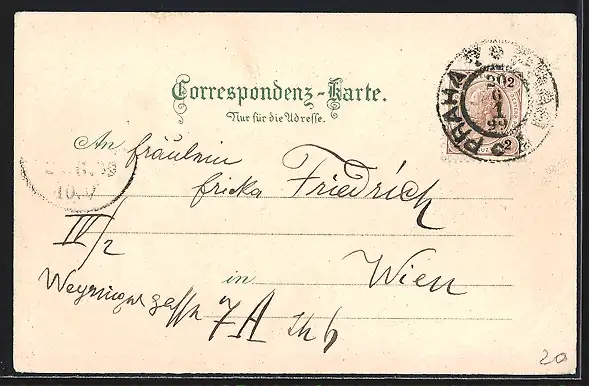 Correspondenz-Karte.
Nur für die Adresse.
PRAHA
2
2
An fräulein
Ericka Friedrich
IV/2
in Wien
Weyringergasse 7A
20